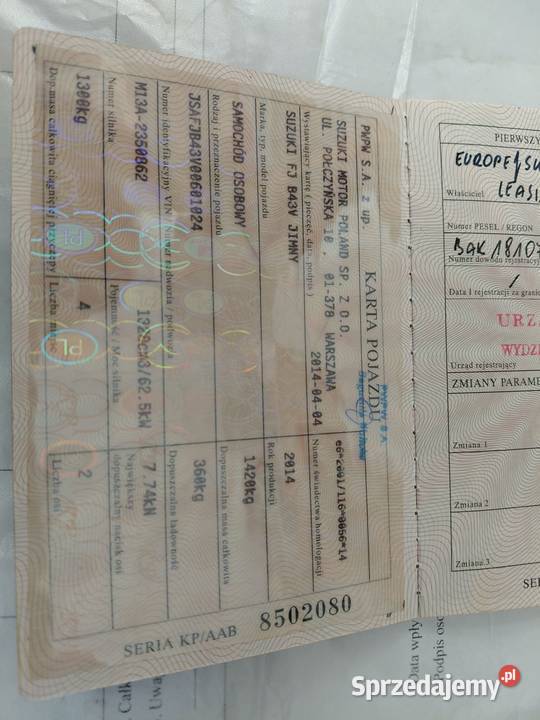 KARTA POJAZDU
PWPW S.A. z up.
SUZUKI MOTOR POLAND SP. Z O.O.
UL. POŁCZYŃSKA 10 , 01-378 WARSZAWA
2014-04-04
Wystawiający kartę ( pieczęć, data, podpis )
e6*2001/116*0056*14
Numer świadectwa homologacji
SUZUKI FJ B43V JIMNY
Marka, typ, model pojazdu
2014
Rok produkcji
SAMOCHÓD OSOBOWY
Rodzaj i przeznaczenie pojazdu
1420kg
Dopuszczalna masa całkowita
JSAFJB43V00601024
Numer identyfikacyjny VIN / Numer nadwozia / podwozia
360kg
Dopuszczalna ładowność
M13A-2350862
Numer silnika
1328cm3/62.5kW
Pojemność / Moc silnika
7.74kN
Największy
dopuszczalny nacisk osi
1300kg
Dop. masa całkowita ciągniętej przyczepy
4
Liczba miejsc
2
Liczba osi
SERIA KP/AAB 8502080
PIERWSZY
EUROPEJSK
LEASI
Właściciel
Numer PESEL / REGON
BAK 18107
Numer dowodu rejestracyj
/
Data I rejestracji za grani
URZĄ
WYDZI
Urząd rejestrujący
ZMIANY PARAME
Zmiana 1
Zmiana 2
Zmiana 3
SE
Data wpły
Podpis oso
Całk
Uwa
Sprzedajemy.pl